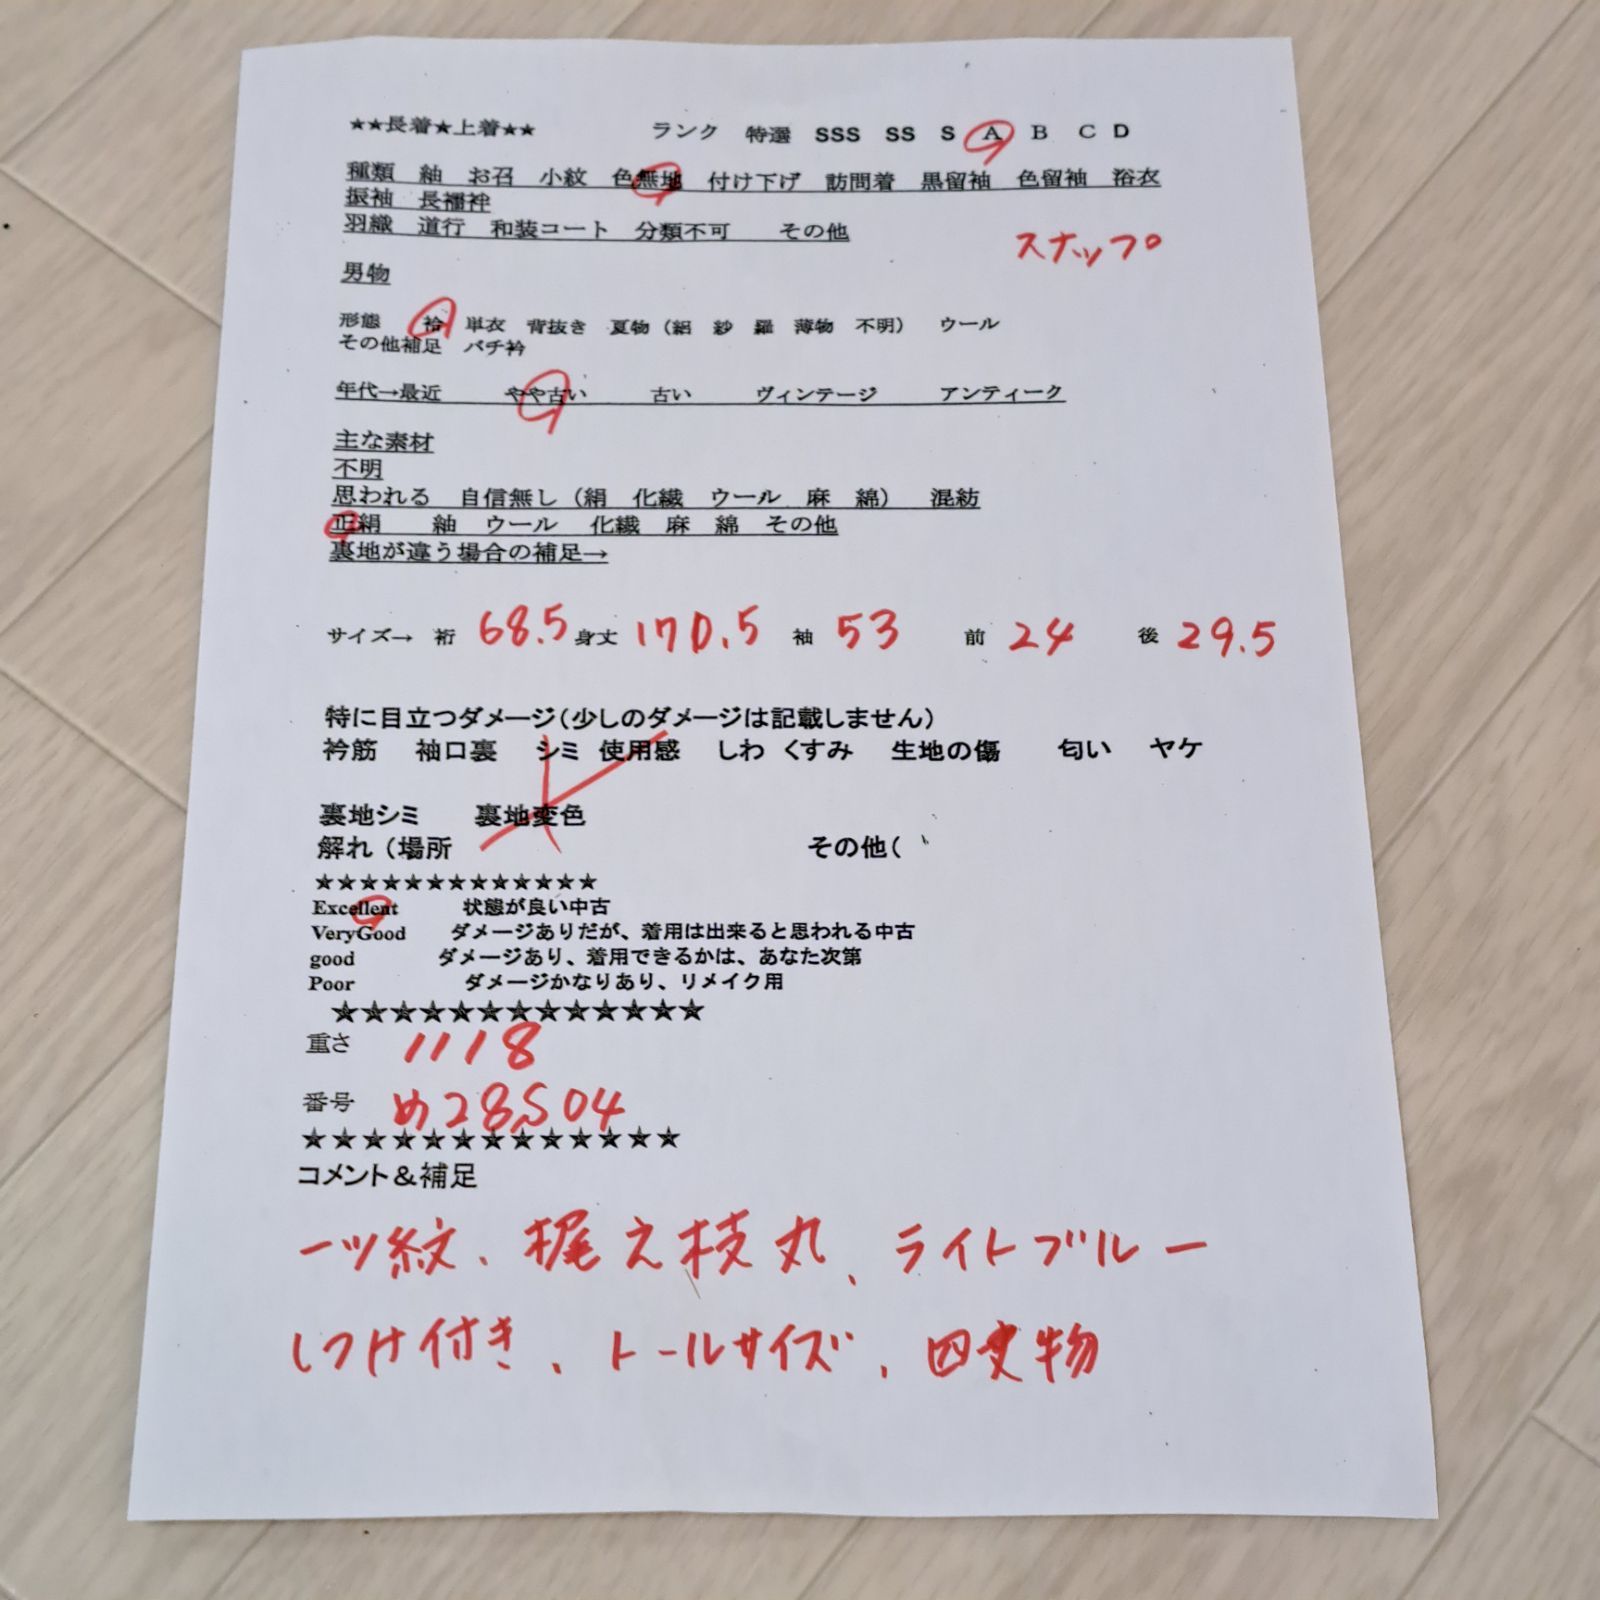 ★★長着★上着★★ ランク 特選 SSS SS S A B C D
種類 紬 お召 小紋 色無地 付け下げ 訪問着 黒留袖 色留袖 浴衣
振袖 長襦袢
羽織 道行 和装コート 分類不可 その他
スナップ
男物
形態 袷 単衣 背抜き 夏物（絽 紗 羅 薄物 不明） ウール
その他補足 バチ衿
年代→最近 やや古い 古い ヴィンテージ アンティーク
主な素材
不明
思われる 自信無し（絹 化繊 ウール 麻 綿） 混紡
正絹 紬 ウール 化繊 麻 綿 その他
裏地が違う場合の補足→
サイズ→ 裄 68.5 身丈 170.5 袖 53 前 24 後 29.5
特に目立つダメージ（少しのダメージは記載しません）
衿筋 袖口裏 シミ 使用感 しわ くすみ 生地の傷 匂い ヤケ
裏地シミ 裏地変色
解れ（場所 その他（
★★★★★★★★★★★★★
Excellent 状態が良い中古
VeryGood ダメージありだが、着用は出来ると思われる中古
good ダメージあり、着用できるかは、あなた次第
Poor ダメージかなりあり、リメイク用
★★★★★★★★★★★★★
重さ 1118
番号 め28,504
★★★★★★★★★★★★★
コメント＆補足
一ツ紋、梶之枝丸、ライトブルー
しつけ付き、トールサイズ、四丈物